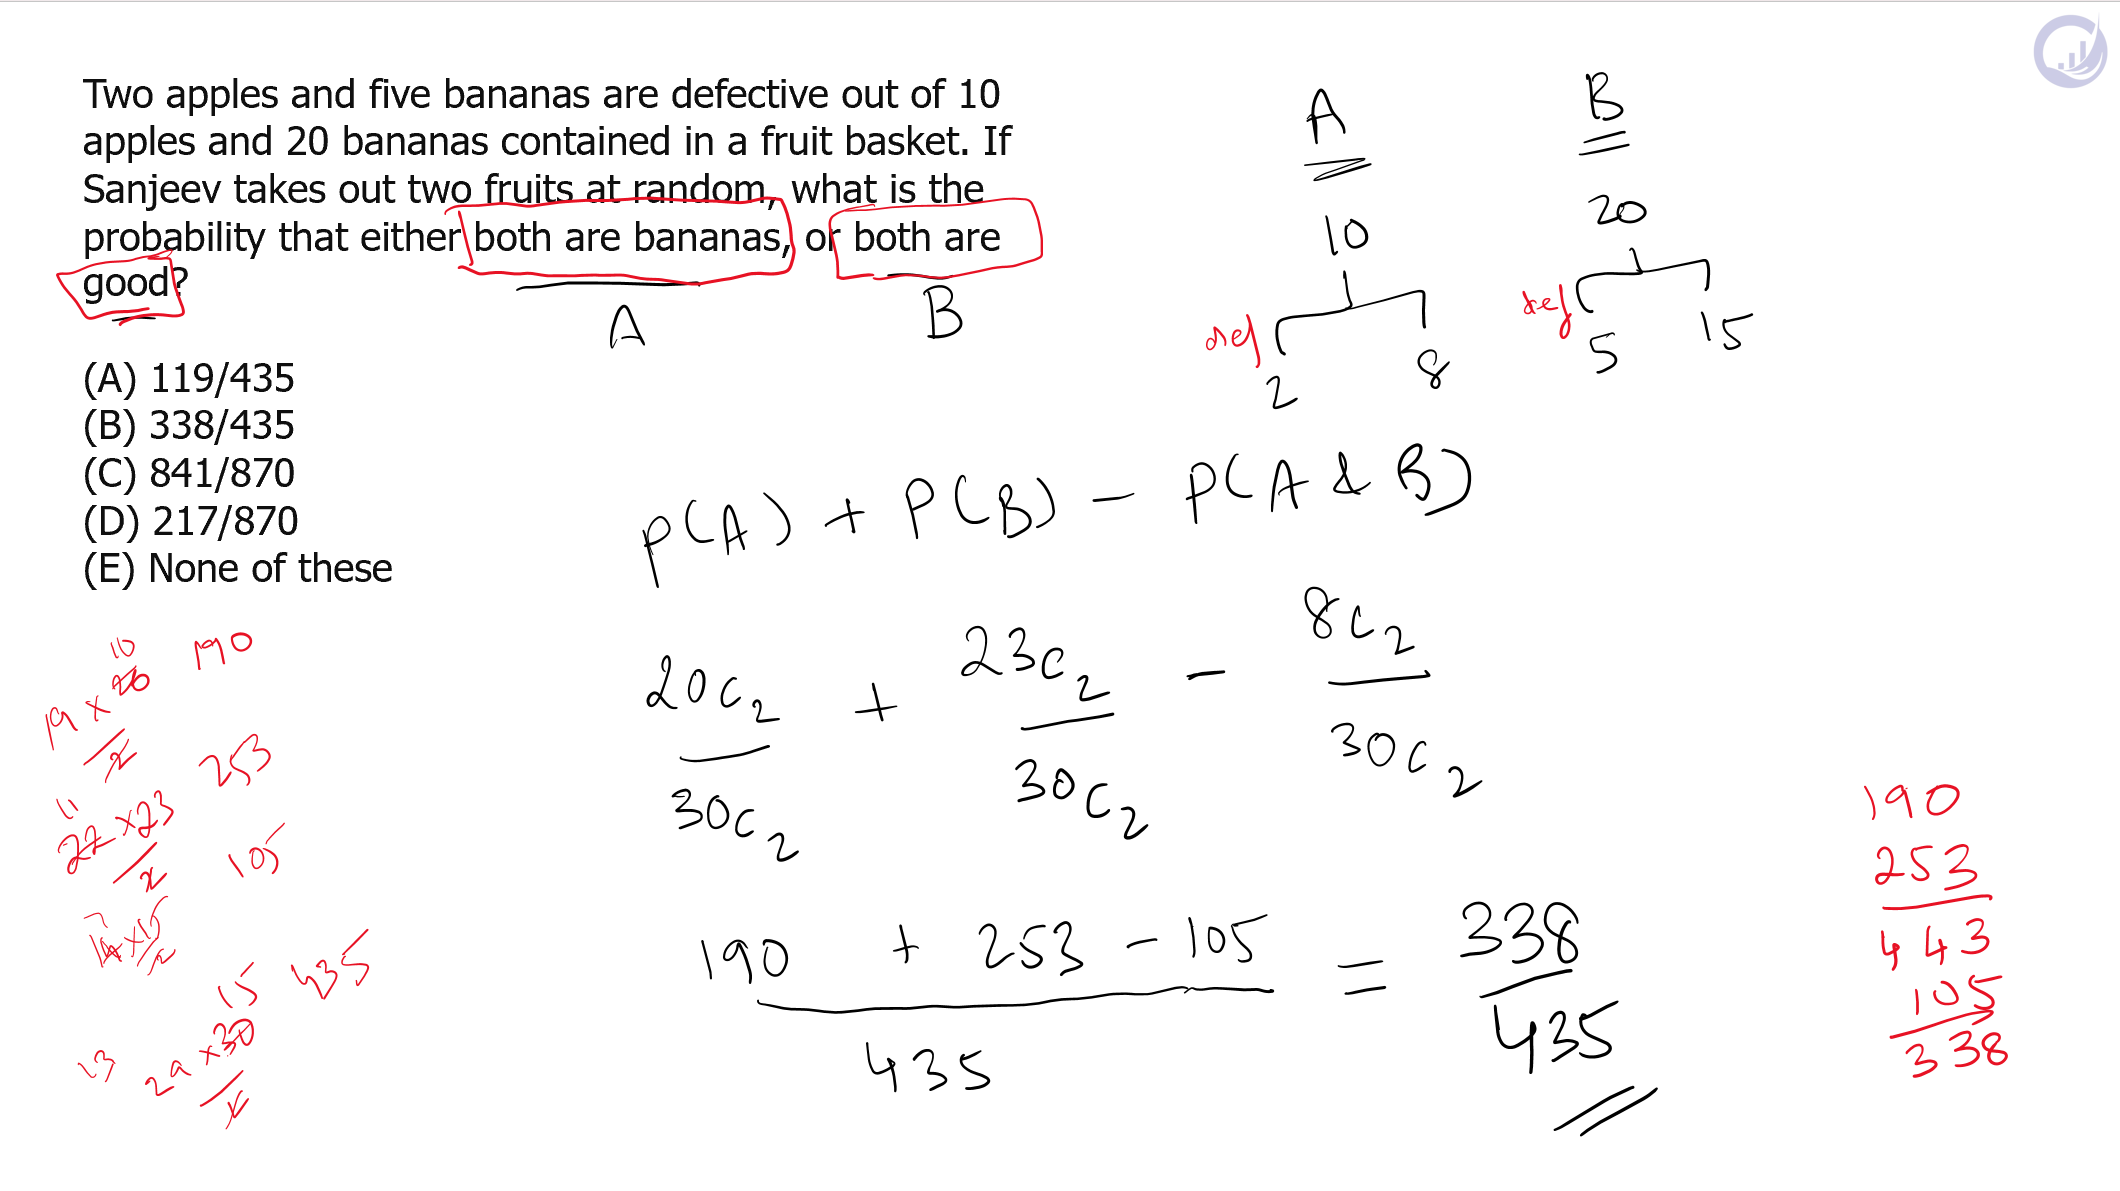 Two apples and five bananas are defective out of 10
apples and 20 bananas contained in a fruit basket. If
Sanjeev takes out two fruits at random, what is the
probability that either both are bananas, or both are
good?
A
B
(A) 119/435
(B) 338/435
(C) 841/870
(D) 217/870
(E) None of these
A
10
def
2
8
B
20
def
5
15
P(A) + P(B) - P(A & B)
20C2 + 23C2 - 8C2
30C2 30C2 30C2
190 + 253 - 105 = 338
435 435
10
19 × 20 190
2
11
22 × 23 253
2
7
14 × 15 105
2
15
29 × 30 435
2
13
190
253
443
105
338